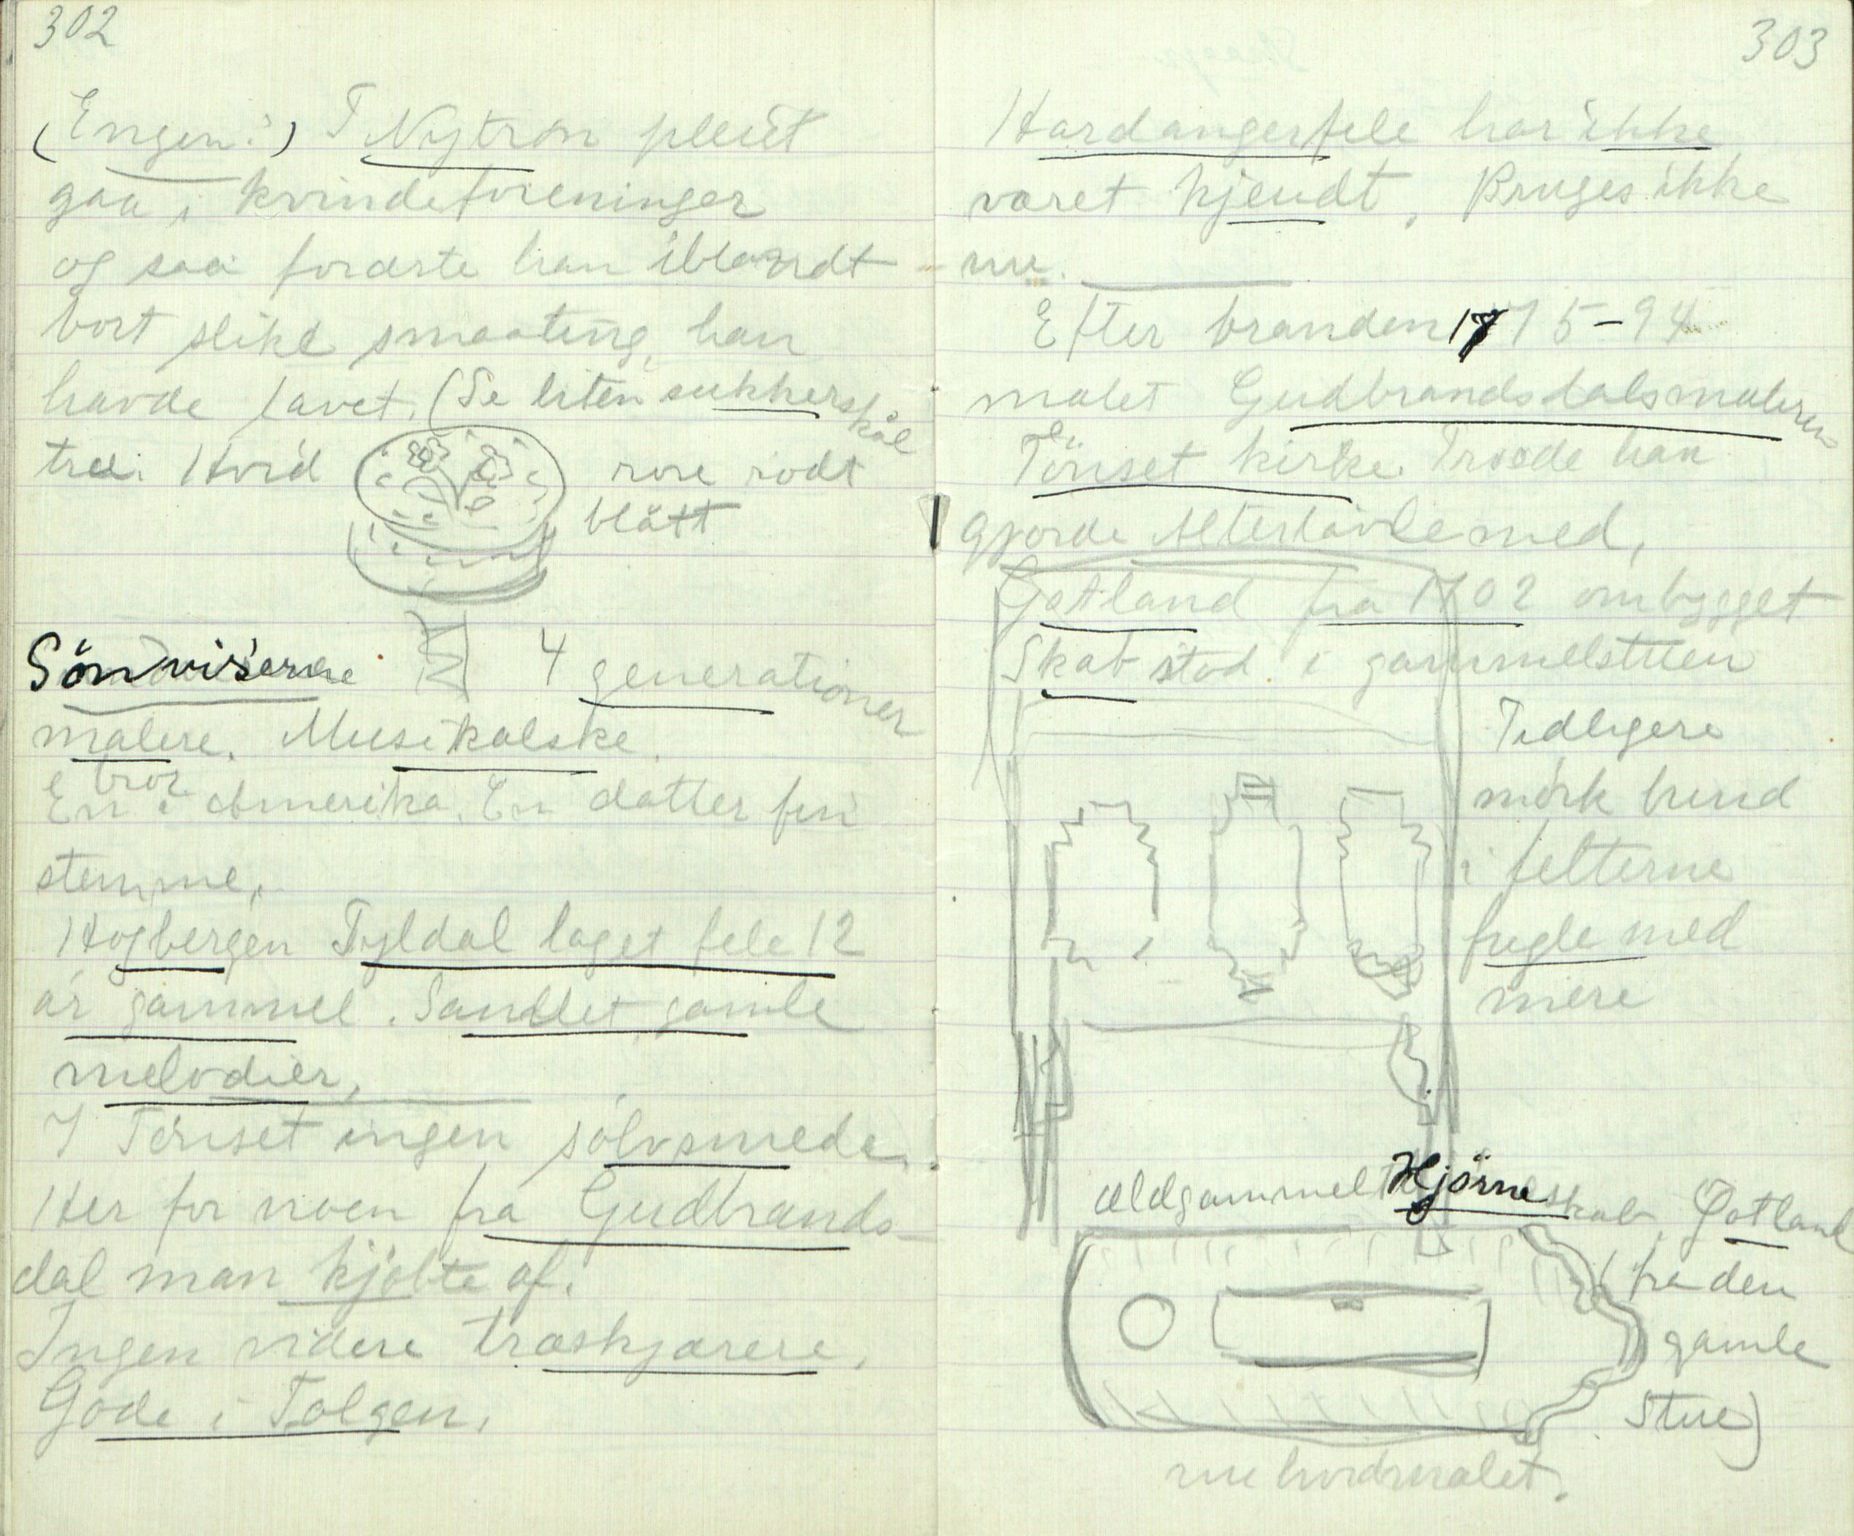 302
(Engen?) T Nytrøn pleiet
gaa i kvindeforeninger
og saa forærte han iblandt
bort slike smaating, han
havde lavet. (Se liten sukkerskål
træ. Hvid rose rødt
blått
Sönviserne 4 generationer
malere. Musikalske.
En bror i Amerika. En datter fin
stemme.
Høgbergen Tyldal laget fele 12
år gammel. Samlet gamle
melodier.
I Tönset ingen sölvsmede.
Her for noen fra Gudbrands-
dal man kjøbte af.
Ingen videre træskjærere.
Gode i Tolgen.
303
Hardangerfele har ikke
været kjendt. Bruges ikke
nu.
Efter branden 1775-94
malet Gudbrandsdalsmaleren
Tönset kirke. Troede han
gjorde Altertavle med,
Gotland fra 1702 ombygget
Skab stod i gammelstuen
Tidligere
mörk bund
i felterne
fugle med
mere
ældgammelt Hjörneskab Gotland
(fra den
gamle
Stue)
nu hvidmalet.